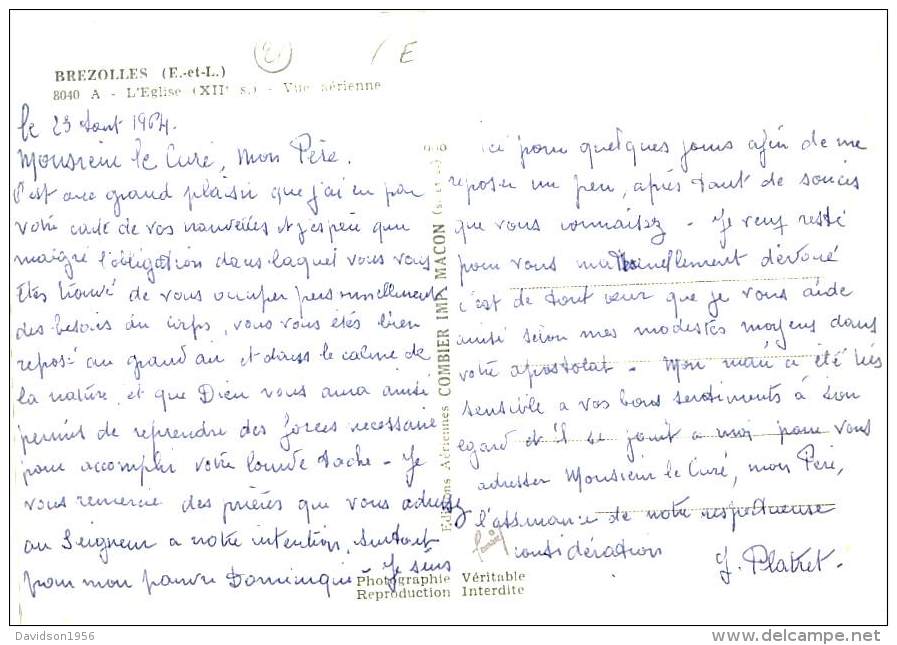 BREZOLLES (E.-et-L.)
8040 A - L'Eglise (XIIe s.) - Vue aérienne
E
le 23 Aout 1964.
Monsieur le Curé, mon Père.
C'est avec grand plaisir que j'ai eu par
votre carte de vos nouvelles et j'espère que
malgré l'obligation dans laquel vous vous
êtes trouvé de vous occuper personnellement
des besoins du corps, vous vous êtes bien
reposé au grand air et dans le calme de
la nature, et que Dieu vous aura ainsi
permis de reprendre des forces necessaire
pour accomplir votre lourde tache - Je
vous remercie des prières que vous adressez
au Seigneur a notre intention, surtout
pour mon pauvre Dominique - Je suis
ici pour quelques jours afin de me
reposer un peu, après tant de soucis
que vous connaissez - Je veux resté
pour vous maternellement dévoué
c'est de tout cœur que je vous aide
ainsi selon mes modestes moyens dans
votre apostolat - Mon mari a été très
sensible a vos bons sentiments à son
egard et il se joint a moi pour vous
adresser Monsieur le Curé, mon Père,
l'assurance de notre respectueuse
considération
J. Platret.
Editions Aériennes COMBIER IMP. MACON
Photographie Véritable
Reproduction Interdite
Davidson1956
delcampe.net